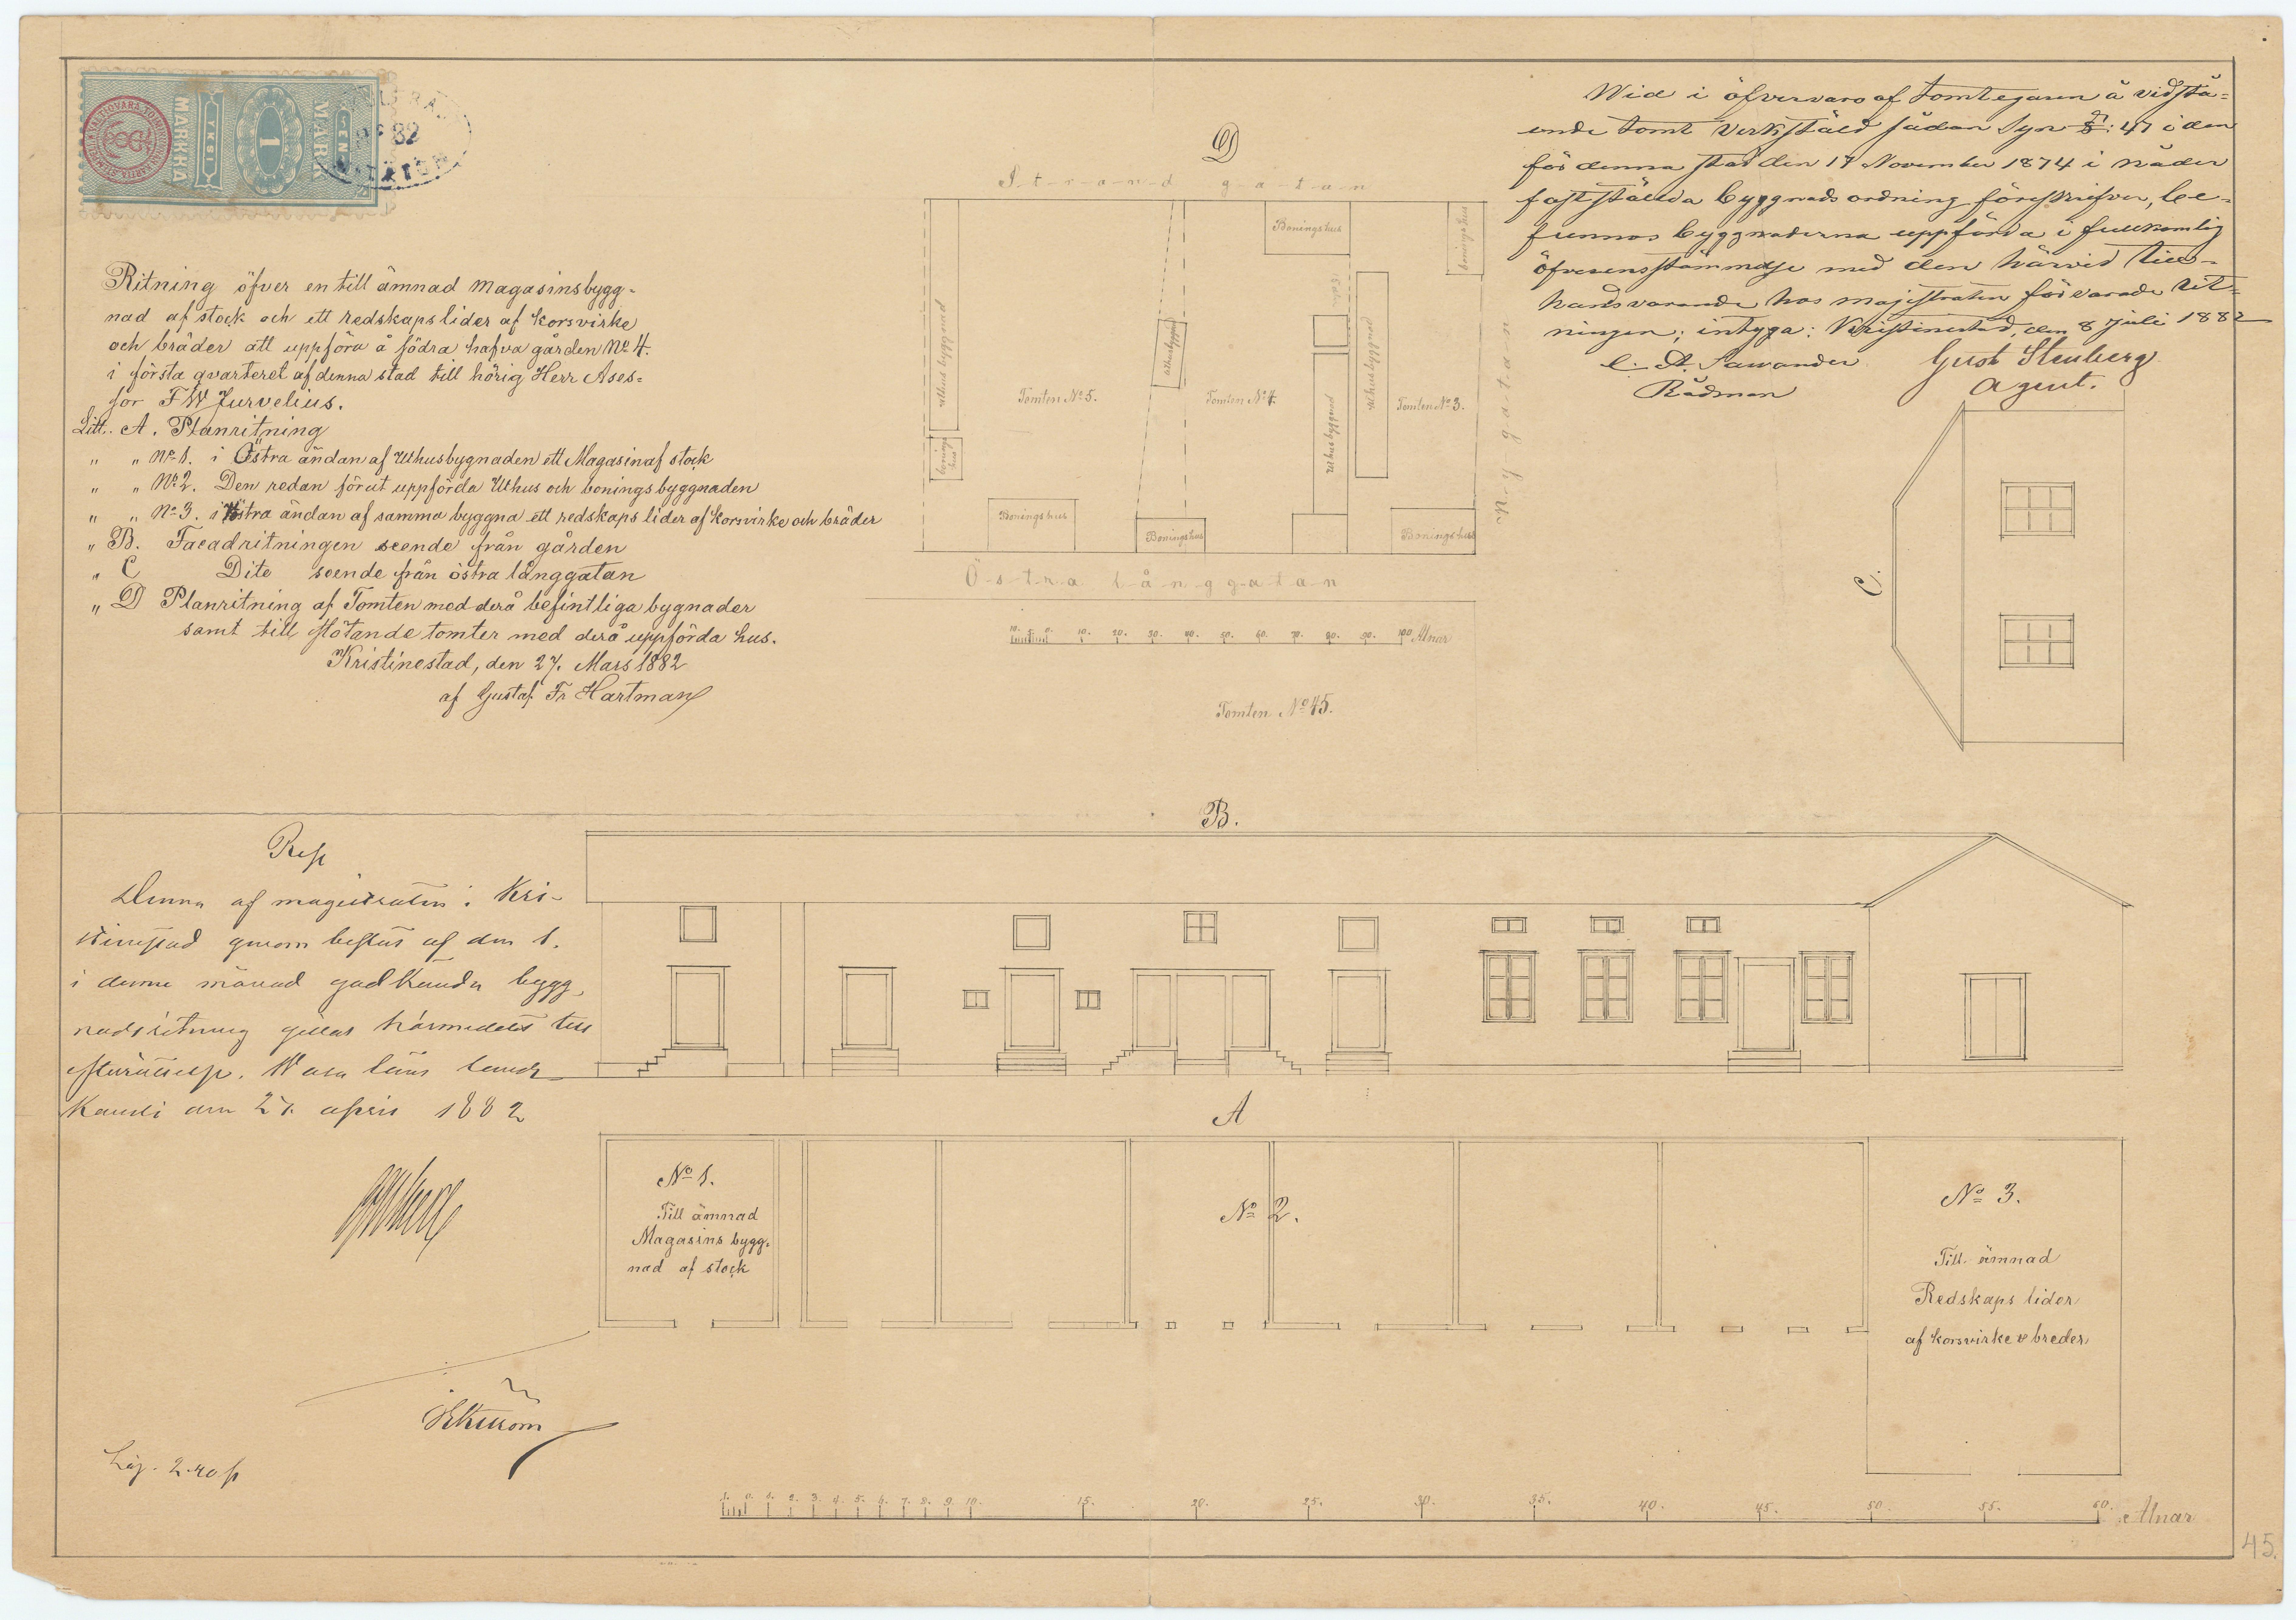 1
MARK
EN
YKSI
MARKKA
82
Ritning öfver en till ämnad Magasinsbygg=
nad af stock och ett redskaps lider af korsvirke
och bräder att uppföra å södra hafva gården No 4.
i första qvarteret af denna stad till hörig Herr Ases=
sor F W Jurvelius.
Litt. A. Planritning
" " No 1. i Östra ändan af Uthusbygnaden ett Magasin af stock
" " No 2. Den redan förut uppförda Uthus och bonings byggnaden
" " No 3. i Västra ändan af samma byggna ett redskaps lider af korsvirke och bräder
" B. Facadritningen seende från gården
" C Dito seende från östra långgatan
" D Planritning af Tomten med derå befintliga bygnader
samt till stötande tomter med derå uppförda hus.
Kristinestad, den 27. Mars 1882
af Gustaf Fr Hartman
D
Strand gatan
Boningshus
boningshus
uthus byggnad
uthusbyggnad
Tomten No 5.
Tomten No 4.
Tomten No 3.
uthusbyggnad
uthus byggnad
bonings
hus
Boningshus
Boningshus
Boningshus
Ny gatan
Östra Långgatan
10. 0. 10. 20. 30. 40. 50. 60. 70. 80. 90. 100 Alnar
Tomten No 45.
Wid i öfvervaro af tomtegaren å vidstå=
ende tomt verkstäld sådan Syn § 47 i den
för denna stad den 17 November 1874 i nåder
fastställda byggnads ordning föreskrifver, be=
funnos byggnaderna uppförda i fullkomlig
öfverensstämmelse med den härvid till=
hands varande hos majistraten förvarade rit=
ningen; intyga: Kristinestad, den 8 Juli 1882
Gust Stenberg
Rådman Agent.
C.
B.
Resp
Denna af magistraten i Kri-
stinestad genom beslut af den 1.
i denne månad godkända bygg,
nadsritning gillas härmedelst till
efterrättelse. Wasa läns lands
kansli den 27. april 1882
Ekström
Lös. 2.40 p
A
No 1.
Till ämnad
Magasins bygg=
nad af stock
No 2.
No 3.
Till ämnad
Redskaps lider
af korsvirke o breder
1. 0. 1. 2. 3. 4. 5. 6. 7. 8. 9. 10. 15. 20. 25. 30. 35. 40. 45. 50. 55. 60. Alnar
45.